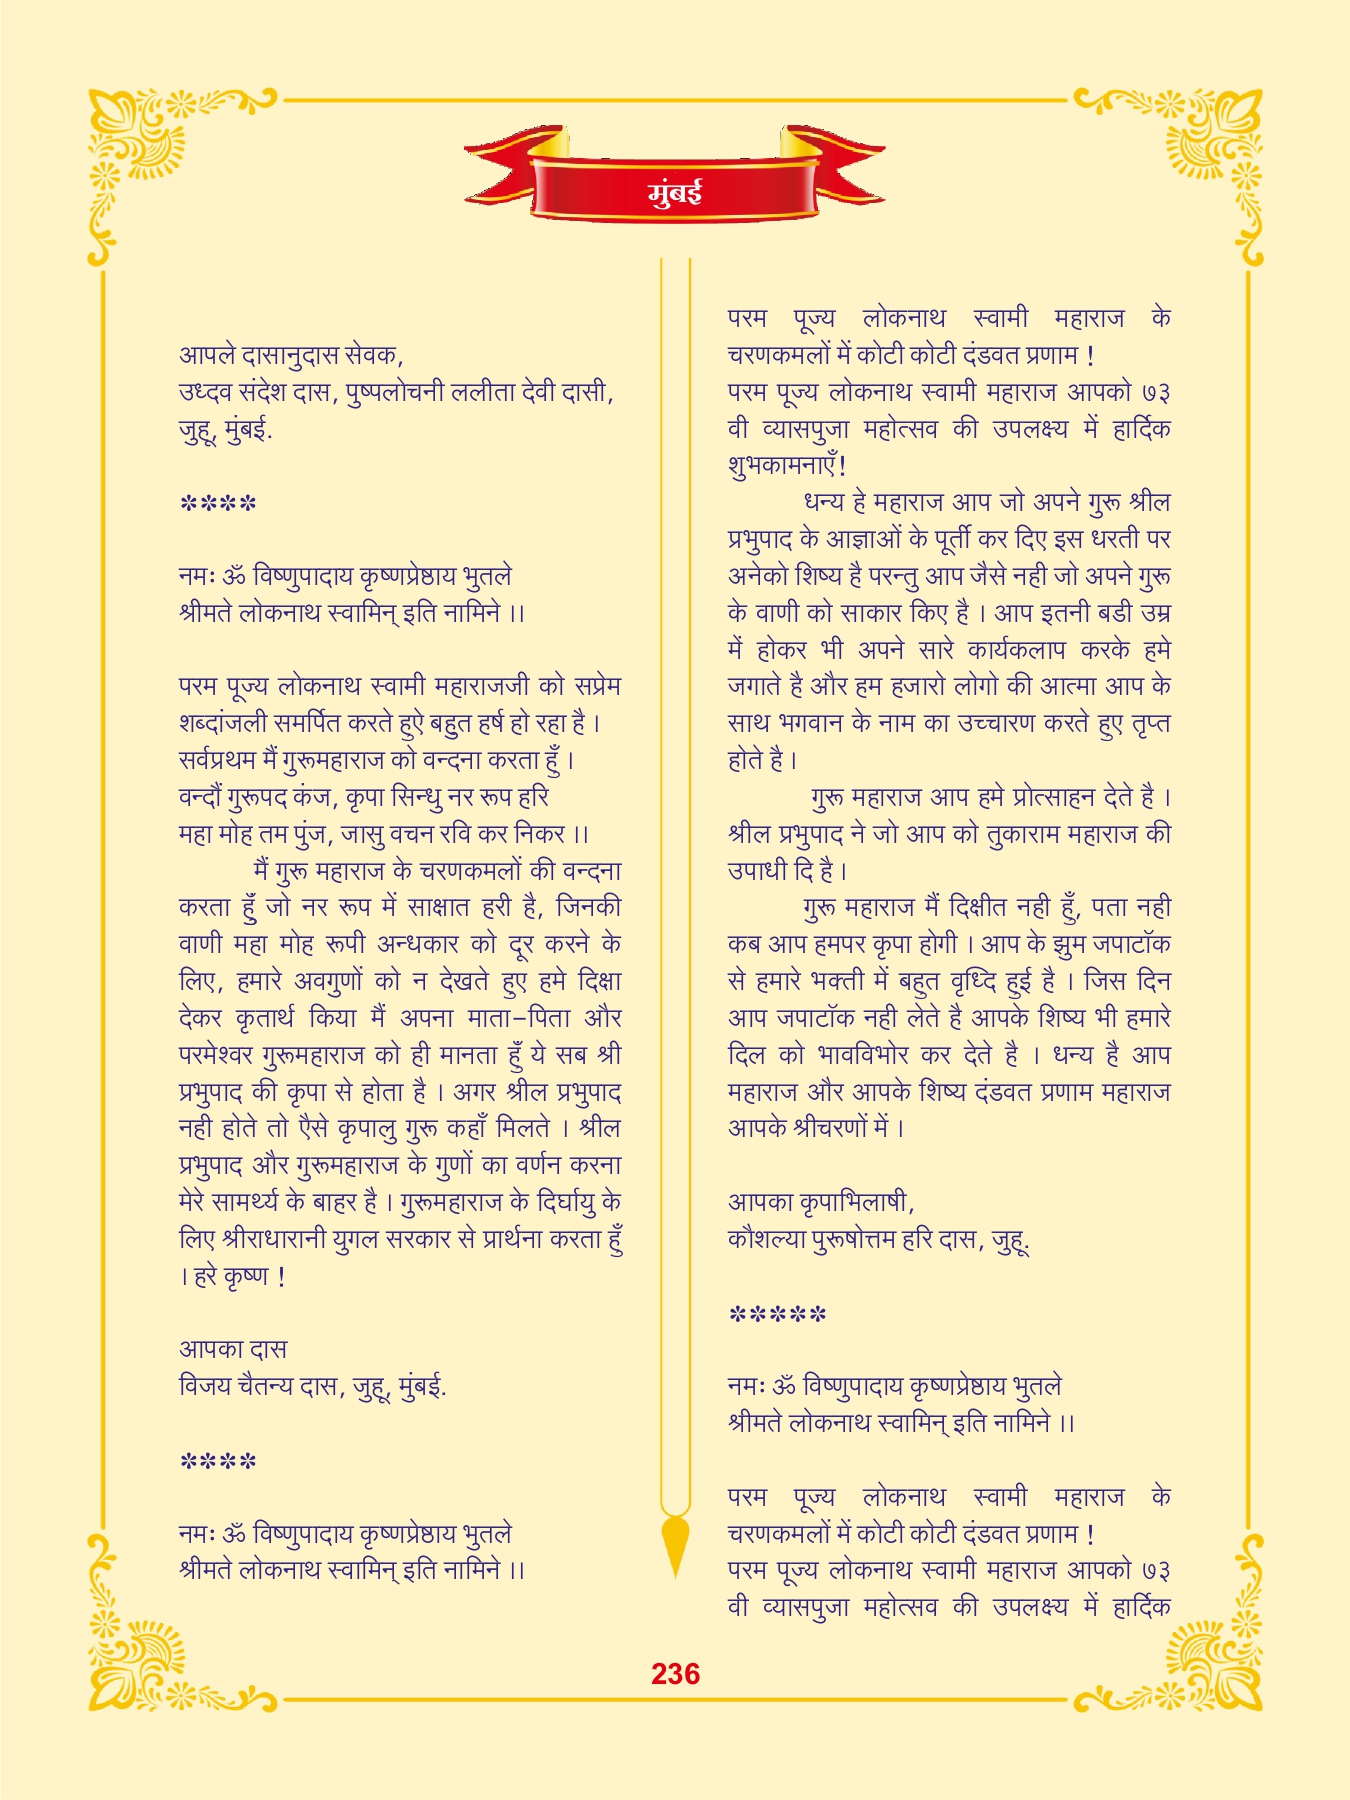 मुंबई
आपले दासानुदास सेवक,
उध्दव संदेश दास, पुष्पलोचनी ललीता देवी दासी,
जुहू, मुंबई.
****
नमः ॐ विष्णुपादाय कृष्णप्रेष्ठाय भुतले
श्रीमते लोकनाथ स्वामिन् इति नामिने ।।
परम पूज्य लोकनाथ स्वामी महाराजजी को सप्रेम
शब्दांजली समर्पित करते हुऐ बहुत हर्ष हो रहा है ।
सर्वप्रथम मैं गुरूमहाराज को वन्दना करता हुँ ।
वन्दौं गुरूपद कंज, कृपा सिन्धु नर रूप हरि
महा मोह तम पुंज, जासु वचन रवि कर निकर ।।
मैं गुरू महाराज के चरणकमलों की वन्दना
करता हुँ जो नर रूप में साक्षात हरी है, जिनकी
वाणी महा मोह रूपी अन्धकार को दूर करने के
लिए, हमारे अवगुणों को न देखते हुए हमे दिक्षा
देकर कृतार्थ किया मैं अपना माता-पिता और
परमेश्वर गुरूमहाराज को ही मानता हुँ ये सब श्री
प्रभुपाद की कृपा से होता है । अगर श्रील प्रभुपाद
नही होते तो एैसे कृपालु गुरू कहाँ मिलते । श्रील
प्रभुपाद और गुरूमहाराज के गुणों का वर्णन करना
मेरे सामर्थ्य के बाहर है । गुरूमहाराज के दिर्घायु के
लिए श्रीराधारानी युगल सरकार से प्रार्थना करता हुँ
। हरे कृष्ण !
आपका दास
विजय चैतन्य दास, जुहू, मुंबई.
****
नमः ॐ विष्णुपादाय कृष्णप्रेष्ठाय भुतले
श्रीमते लोकनाथ स्वामिन् इति नामिने ।।
परम पूज्य लोकनाथ स्वामी महाराज के
चरणकमलों में कोटी कोटी दंडवत प्रणाम !
परम पूज्य लोकनाथ स्वामी महाराज आपको ७३
वी व्यासपुजा महोत्सव की उपलक्ष्य में हार्दिक
शुभकामनाएँ!
धन्य हे महाराज आप जो अपने गुरू श्रील
प्रभुपाद के आज्ञाओं के पूर्ती कर दिए इस धरती पर
अनेको शिष्य है परन्तु आप जैसे नही जो अपने गुरू
के वाणी को साकार किए है । आप इतनी बडी उम्र
में होकर भी अपने सारे कार्यकलाप करके हमे
जगाते है और हम हजारो लोगो की आत्मा आप के
साथ भगवान के नाम का उच्चारण करते हुए तृप्त
होते है ।
गुरू महाराज आप हमे प्रोत्साहन देते है ।
श्रील प्रभुपाद ने जो आप को तुकाराम महाराज की
उपाधी दि है ।
गुरू महाराज मैं दिक्षीत नही हुँ, पता नही
कब आप हमपर कृपा होगी । आप के झुम जपाटॉक
से हमारे भक्ती में बहुत वृध्दि हुई है । जिस दिन
आप जपाटॉक नही लेते है आपके शिष्य भी हमारे
दिल को भावविभोर कर देते है । धन्य है आप
महाराज और आपके शिष्य दंडवत प्रणाम महाराज
आपके श्रीचरणों में ।
आपका कृपाभिलाषी,
कौशल्या पुरूषोत्तम हरि दास, जुहू.
*****
नमः ॐ विष्णुपादाय कृष्णप्रेष्ठाय भुतले
श्रीमते लोकनाथ स्वामिन् इति नामिने ।।
परम पूज्य लोकनाथ स्वामी महाराज के
चरणकमलों में कोटी कोटी दंडवत प्रणाम !
परम पूज्य लोकनाथ स्वामी महाराज आपको ७३
वी व्यासपुजा महोत्सव की उपलक्ष्य में हार्दिक
236